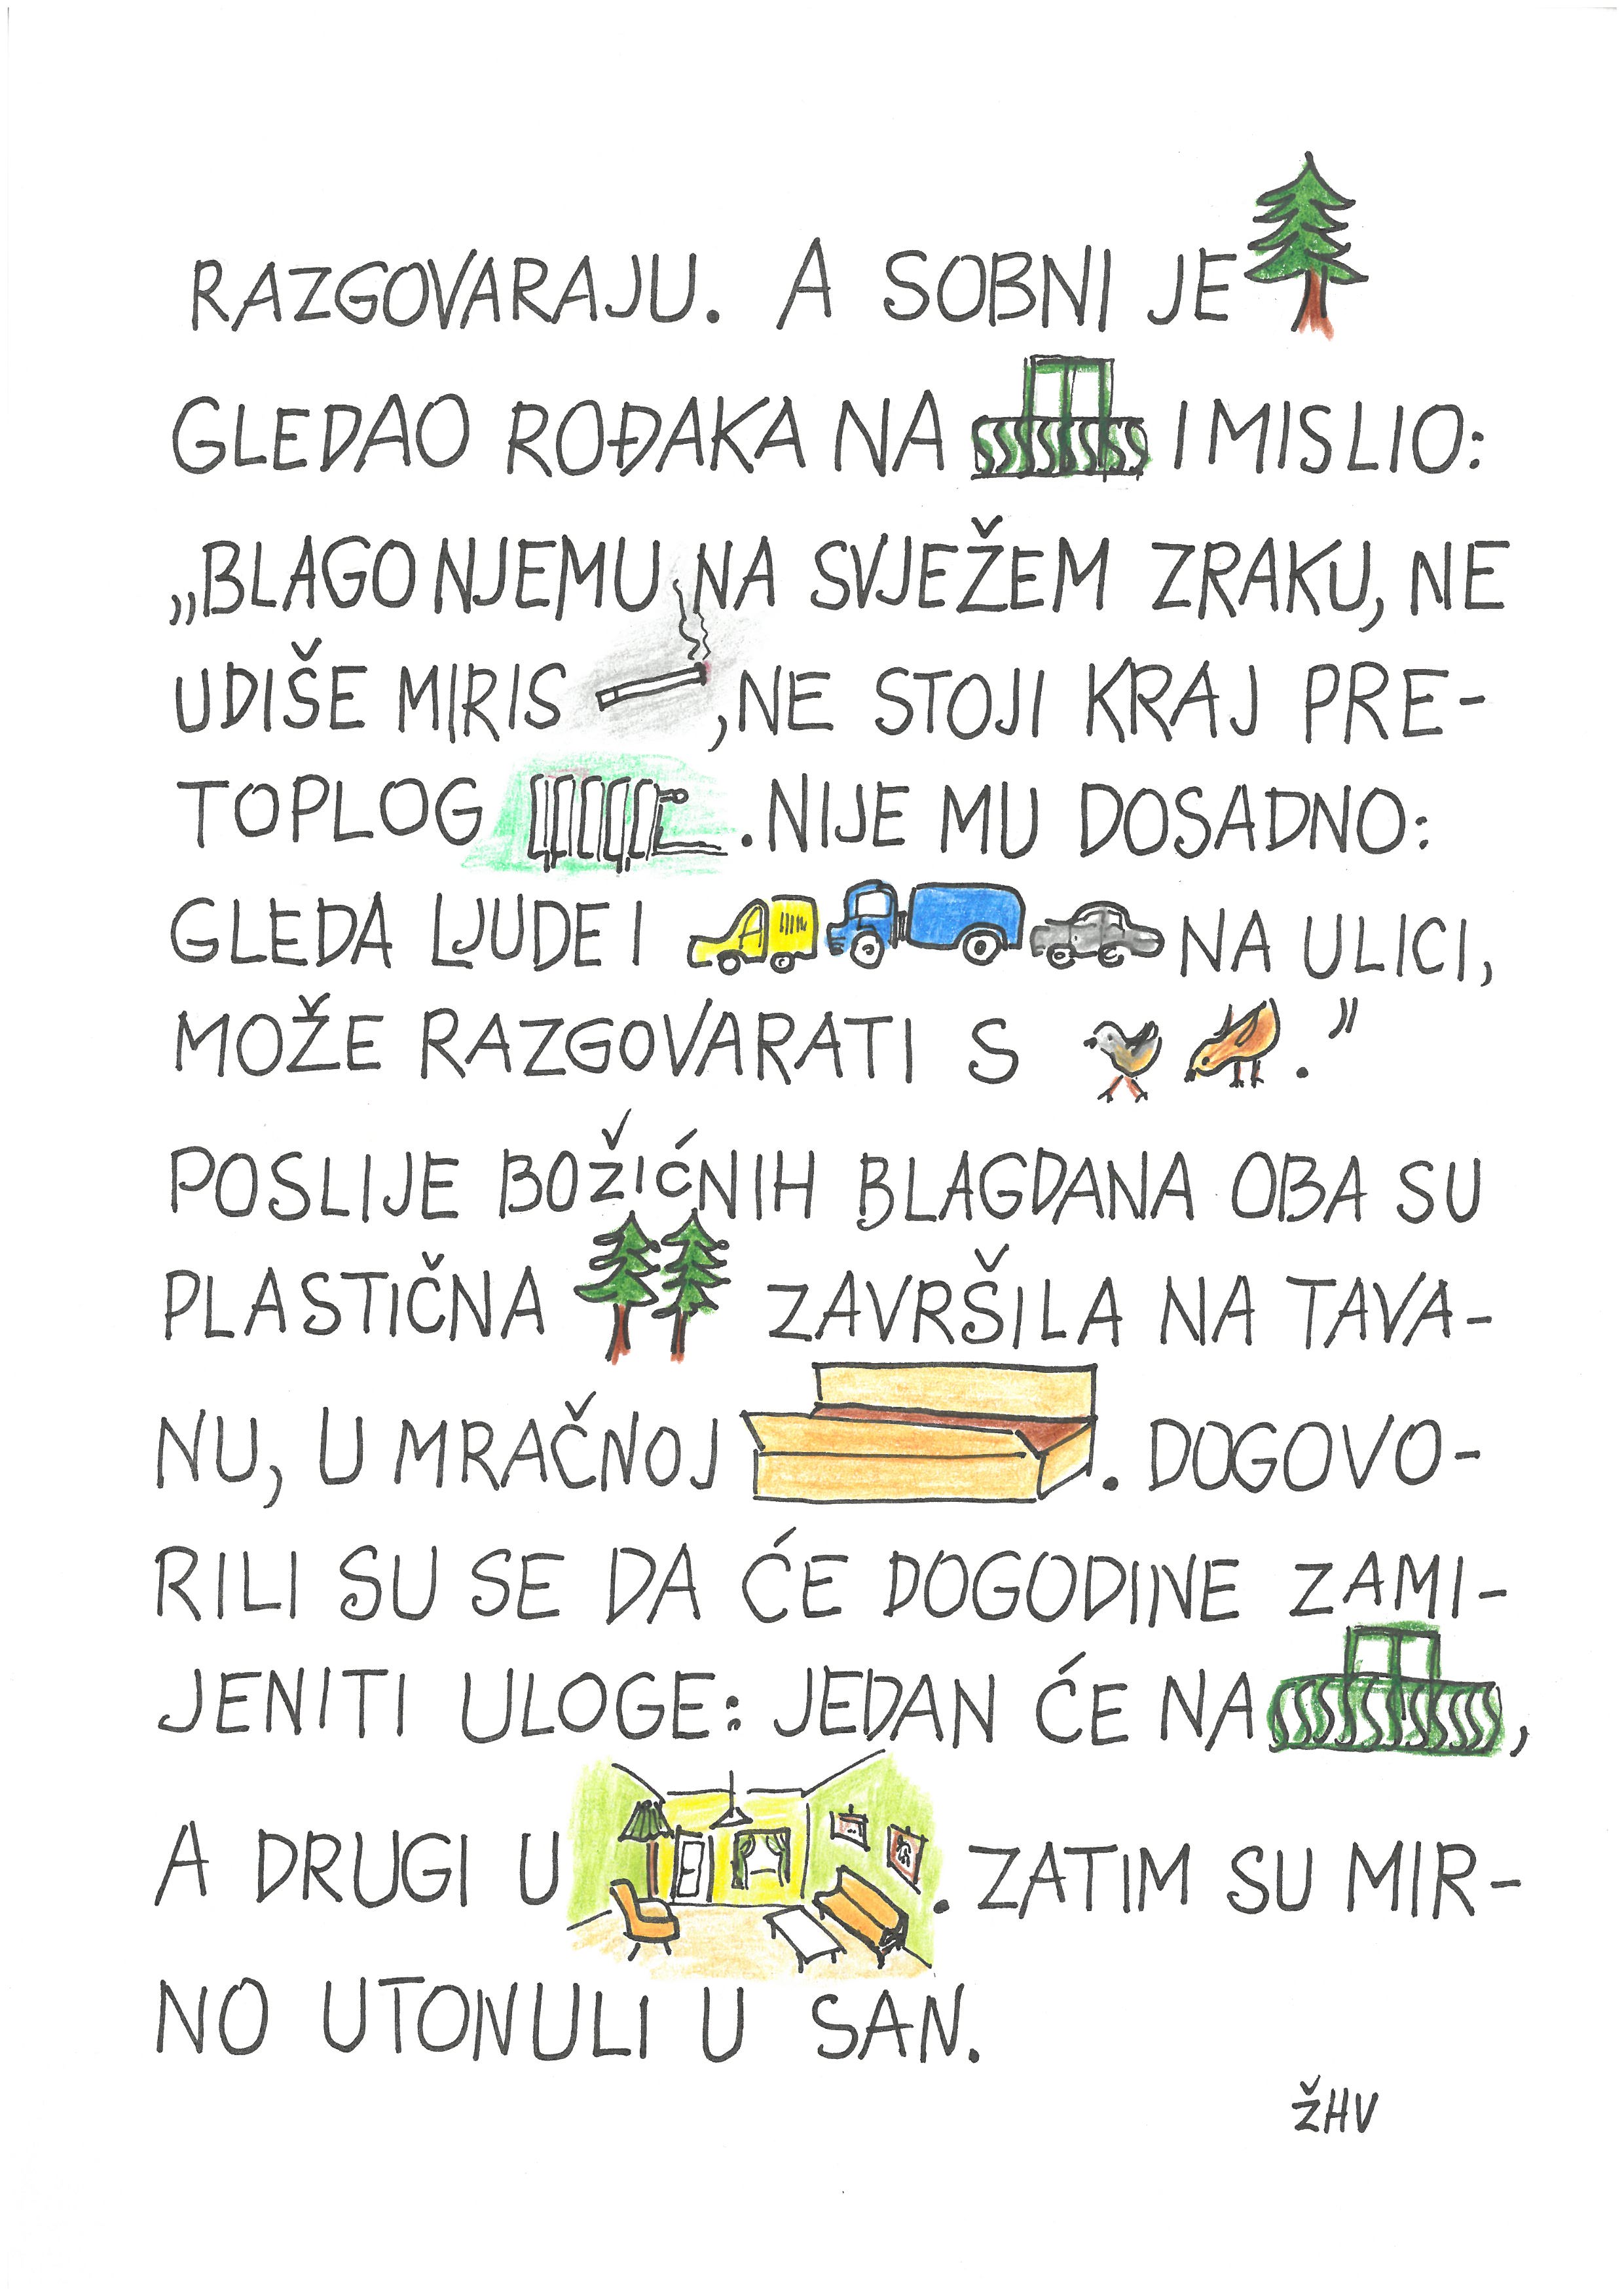 RAZGOVARAJU. A SOBNI JE
GLEDAO ROĐAKA NA I MISLIO:
„BLAGO NJEMU NA SVJEŽEM ZRAKU, NE
UDIŠE MIRIS , NE STOJI KRAJ PRE-
TOPLOG . NIJE MU DOSADNO:
GLEDA LJUDE I NA ULICI,
MOŽE RAZGOVARATI S .”
POSLIJE BOŽIĆNIH BLAGDANA OBA SU
PLASTIČNA ZAVRŠILA NA TAVA-
NU, U MRAČNOJ . DOGOVO-
RILI SU SE DA ĆE DOGODINE ZAMI-
JENITI ULOGE: JEDAN ĆE NA ,
A DRUGI U . ZATIM SU MIR-
NO UTONULI U SAN.
ŽHV